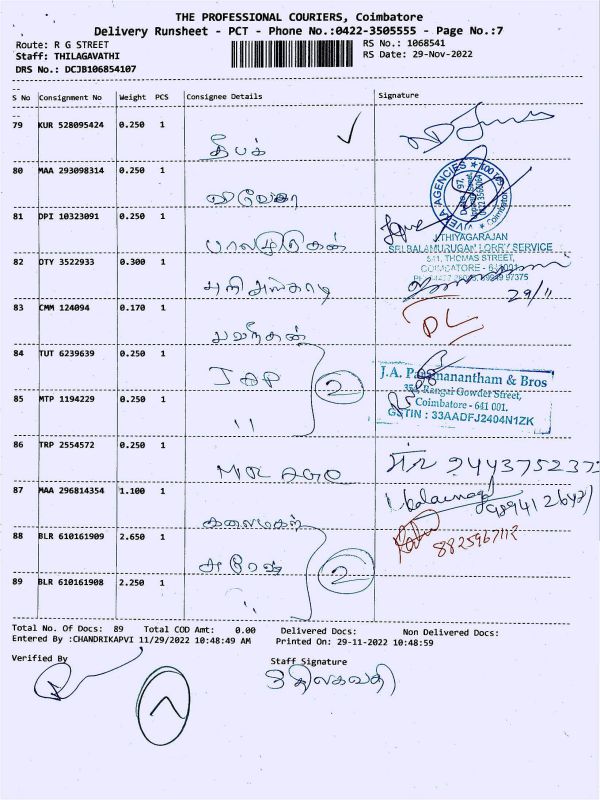 THE PROFESSIONAL COURIERS, Coimbatore
Delivery Runsheet - PCT - Phone No.:0422-3505555 - Page No.:7
Route: R G STREET
RS No.: 1068541
Staff: THILAGAVATHI
RS Date: 29-Nov-2022
DRS No.: DCJB106854107
S No Consignment No Weight PCS Consignee Details Signature
79 KUR 528095424 0.250 1
தீபக்
80 MAA 293098314 0.250 1
81 DPI 10323091 0.250 1
பாலமுருகன்
82 DTY 3522933 0.300 1
83 CMM 124094 0.170 1
84 TUT 6239639 0.250 1
JAP
85 MTP 1194229 0.250 1
"
2
86 TRP 2554572 0.250 1
87 MAA 296814354 1.100 1
கலைமகள்
88 BLR 610161909 2.650 1
சுரேஷ்
89 BLR 610161908 2.250 1
"
2
VIVEKA AGENCIES
J.THIYAGARAJAN
SRI BALAMURUGAN LORRY SERVICE
541, THOMAS STREET,
COIMBATORE - 641001.
29/11
DL
J.A. Paramanantham & Bros
Rangai Gowder Street,
Coimbatore - 641 001.
GSTIN : 33AADFJ2404N1ZK
8825967112
Total No. Of Docs: 89 Total COD Amt: 0.00 Delivered Docs: Non Delivered Docs:
Entered By :CHANDRIKAPVI 11/29/2022 10:48:49 AM Printed On: 29-11-2022 10:48:59
Verified By
Staff Signature
திலகவதி